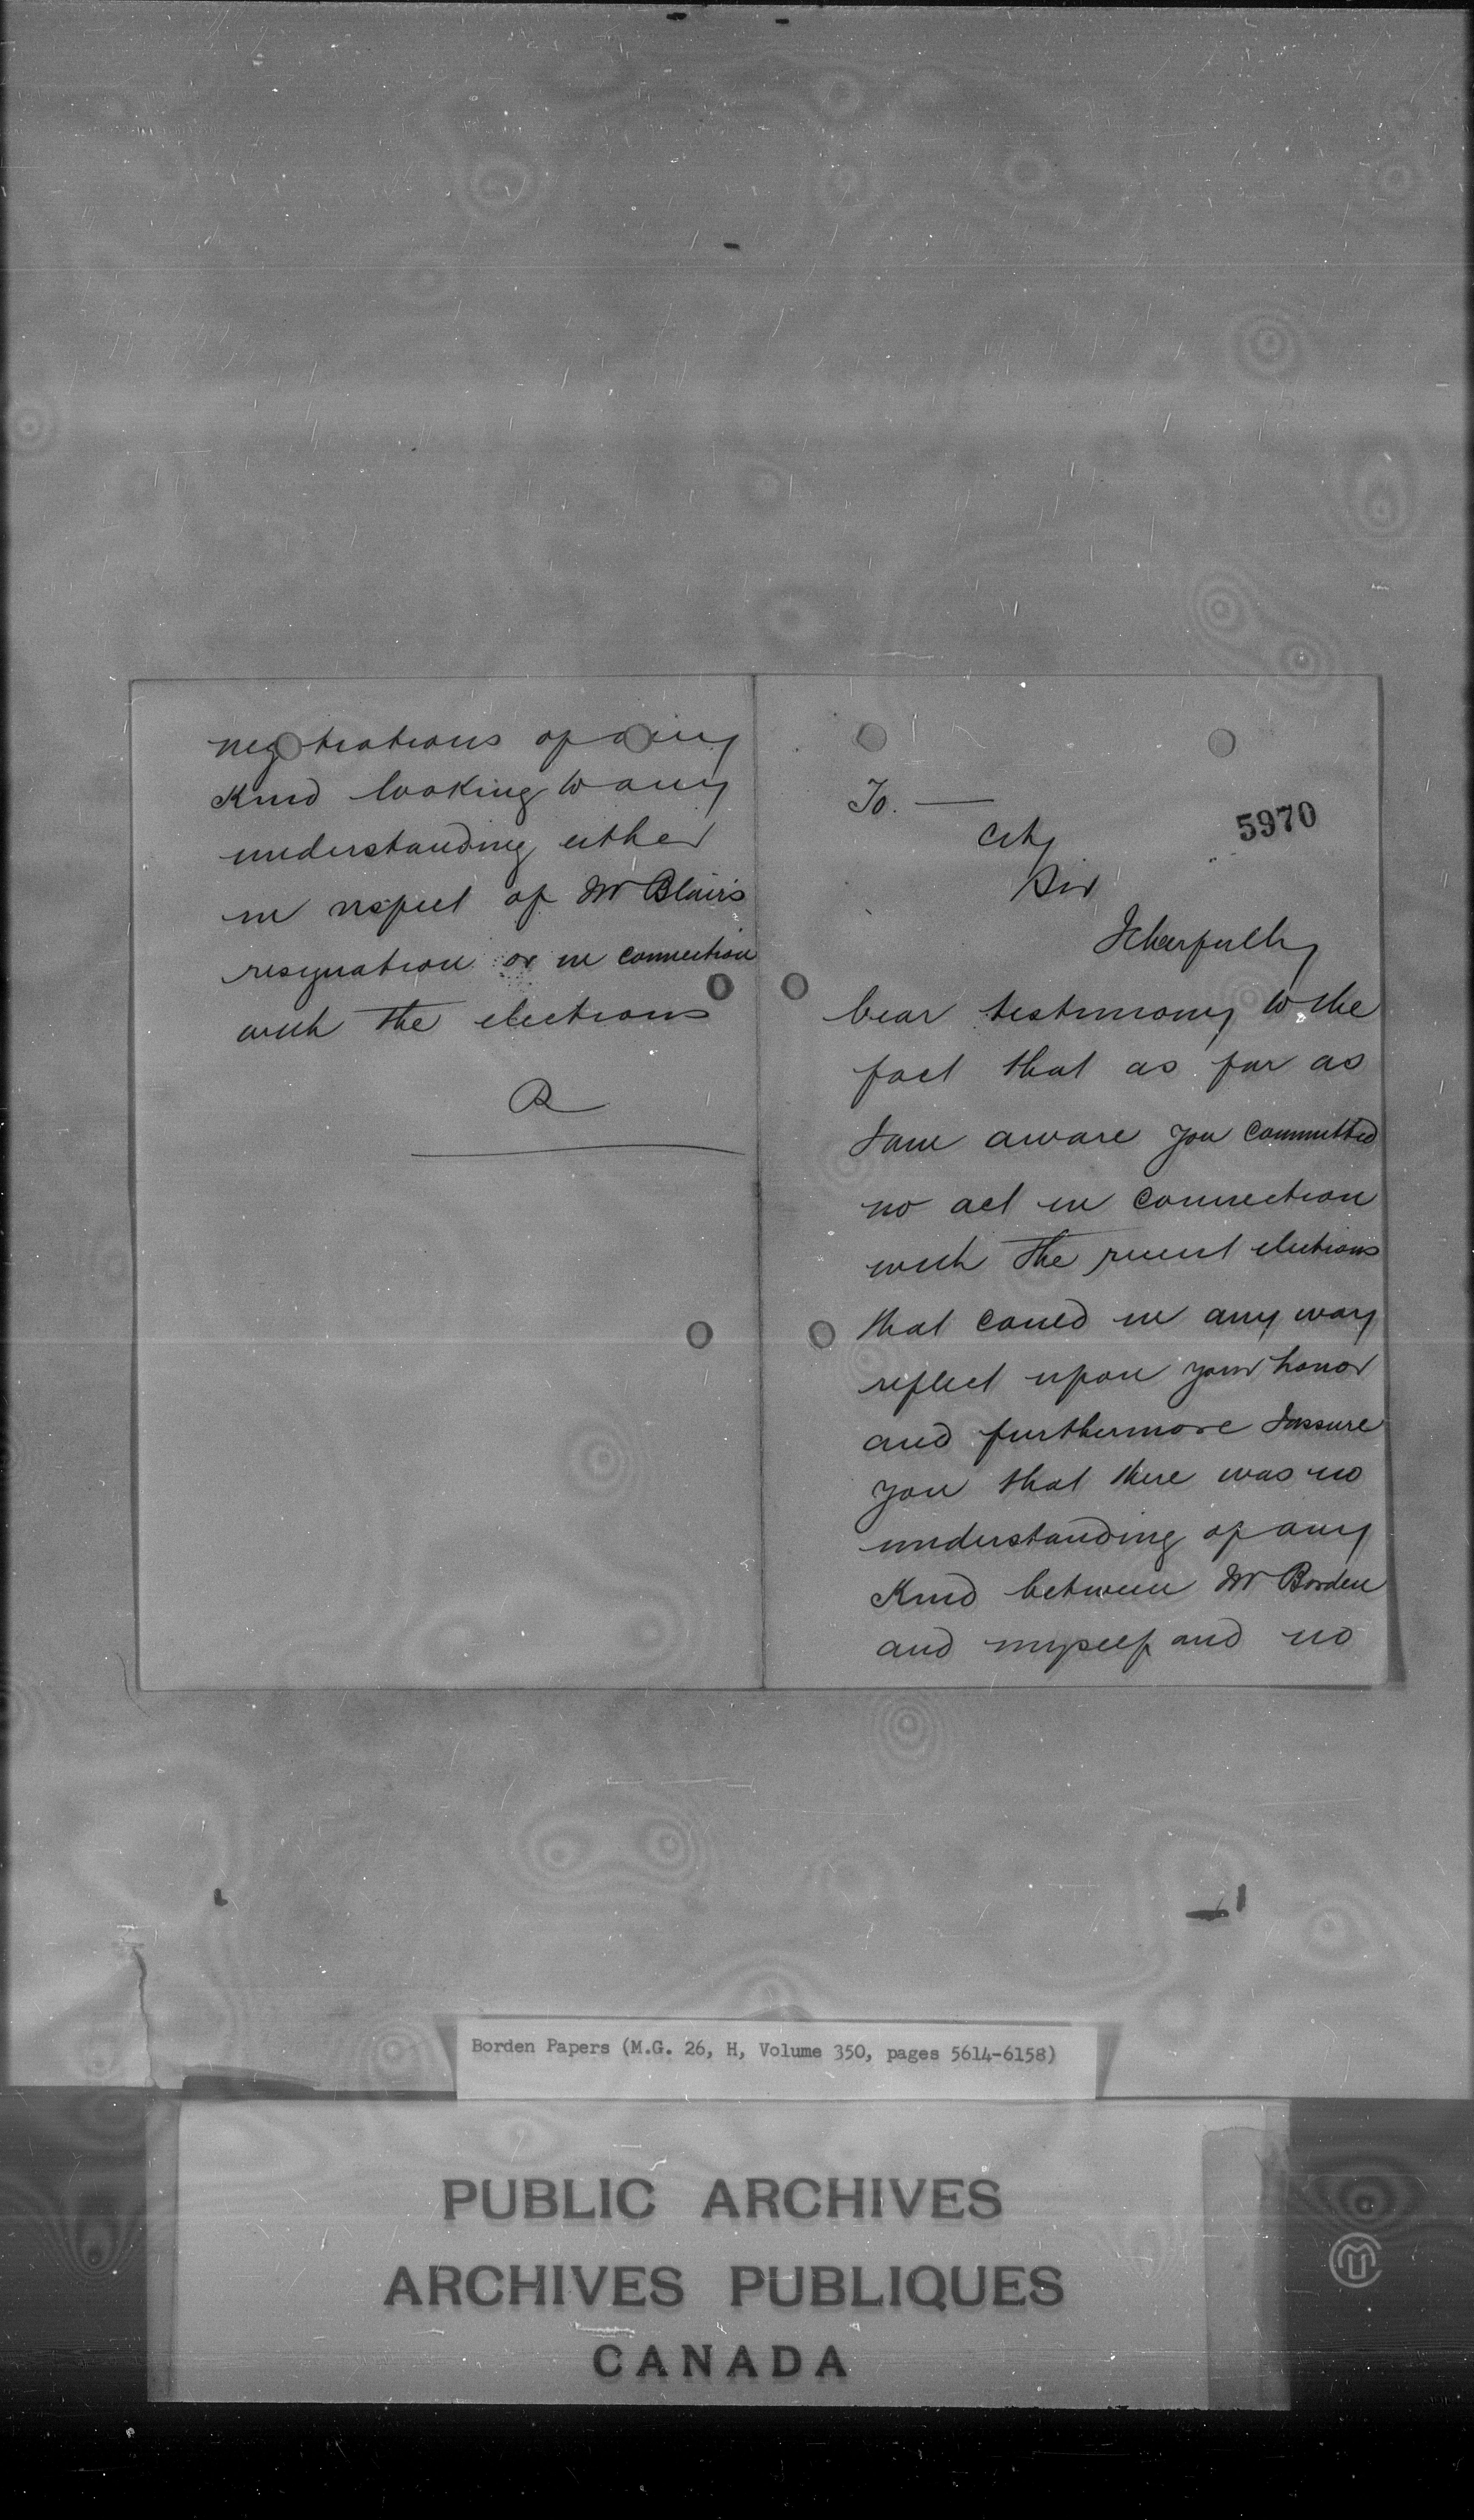 To. —
City
Sir
5970
I cheerfully
bear testimony to the
fact that as far as
I am aware you committed
no act in connection
with the recent elections
that could in any way
reflect upon your honor
and furthermore I assure
you that there was no
understanding of any
kind between Mr Borden
and myself and no
negotiations of any
kind looking to any
understanding either
in respect of Mr Blair's
resignation or in connection
with the elections
R
Borden Papers (M.G. 26, H, Volume 350, pages 5614-6158)
PUBLIC ARCHIVES
ARCHIVES PUBLIQUES
CANADA